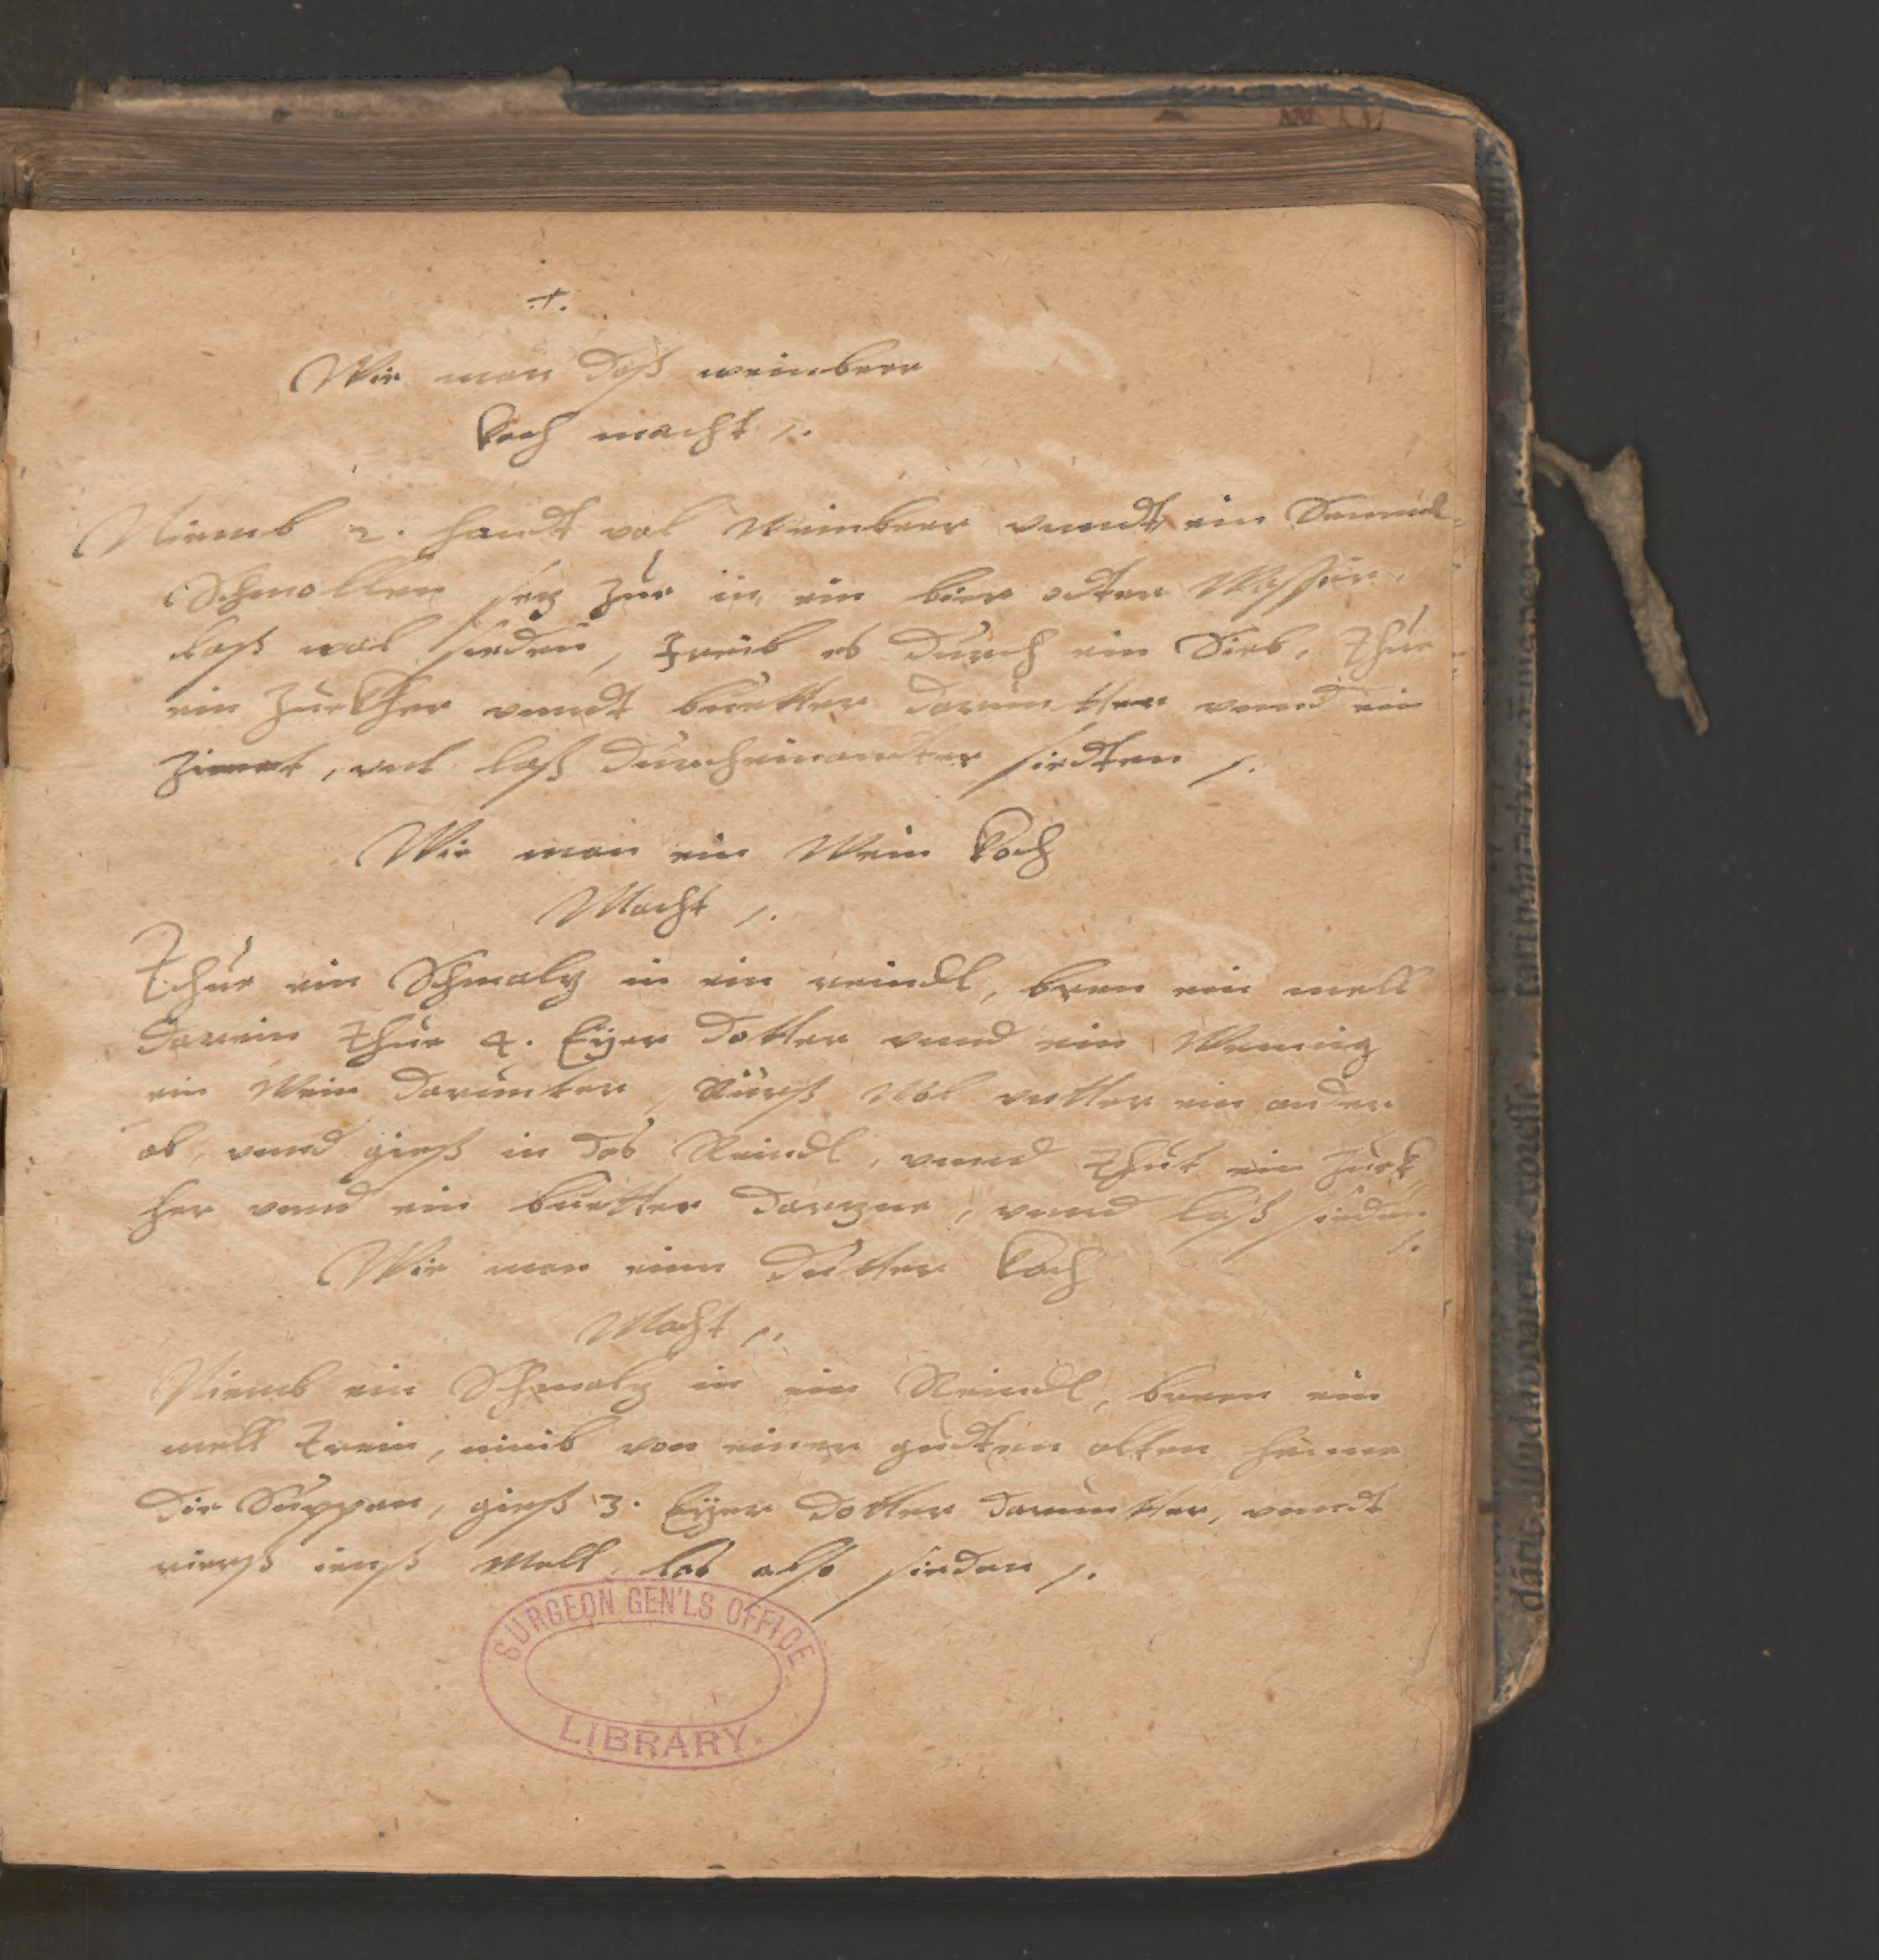 .+.
Wie man daß weinbeer
Koch macht /.
Niemb 2. handt vol Weinbeer vnndt ein Semmel-
Schmollen sez zue in ein bier odter Wasser,
laß wol sieden, treib es durch ein Sieb, thue
ein Zuckher vnndt buetter daruntter vnnd ein
Zimet, vnt laß durcheinandter siedten /.
Wie man ein Wein Koch
Macht /.
Thue ein Schmalz in ein reindl, bren ein mell
darein thue 4. Eyer dotter vnnd ein Wennig
ein Wein darunter, Rüerß Wol vntter ein ander
ab, vnnd gieß in das Reindl, vnnd thut ein Zuck
her vnnd ein buetter darzue, vnnd laß sieden
/.
Wie man einn dutter Koch
Macht /.
Niemb ein Schmalz in ein Reindl, bren ein
mell trein, nimb von einer gudten alten henne
die Suppen, gieß 3. Eyer dotter daruntter, vnndt
rierß inß Mell, las also sieden /.
SURGEON GEN'LS OFFICE
LIBRARY.